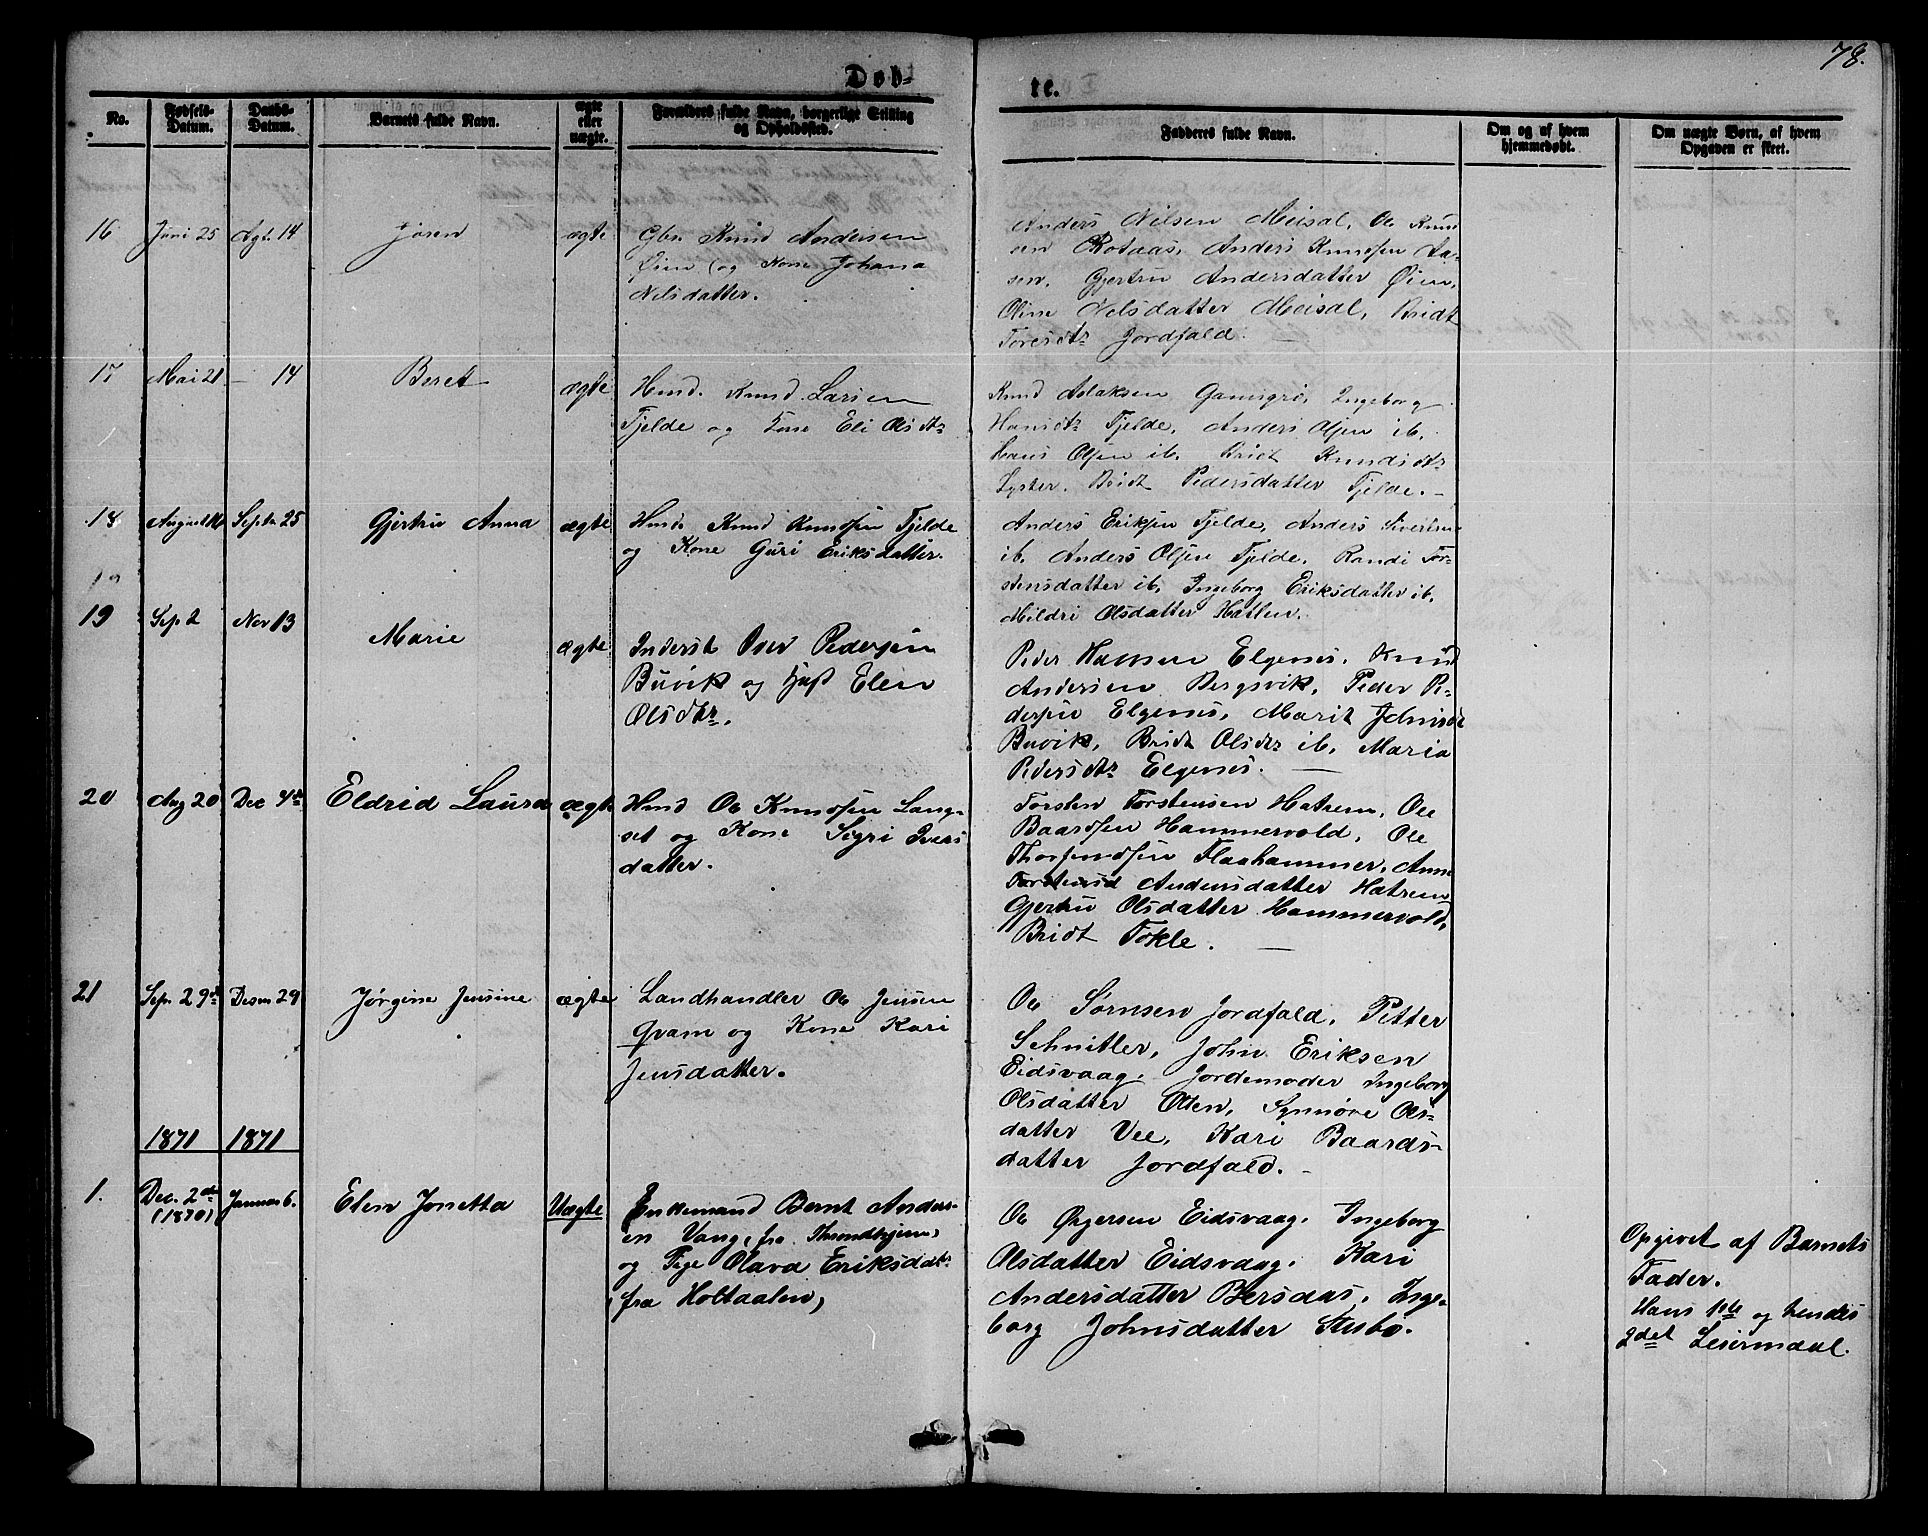 78.
Døb-
te.
No.
Fødsels-
Datum.
Daabs-
Datum.
Barnets fulde Navn.
ægte
eller
uægte.
Forældres fulde Navn, borgerlige Stilling
og Opholdssted.
Fadderes fulde Navn.
Om og af hvem
hjemmedøbt.
Om uægte Børn, af hvem
Opgaven er skeet.
16
Juni 25
Agt. 14
Joren
ægte
Gbr. Knud Andersen
Øien (og Kone Johana
Nilsdatter.
Anders Nilsen Meisal, Ole Knud
sen Rotaas, Anders Knudsen Aa-
sen, Gjertru Andersdatter Øien,
Oline Nelsdatter Meisal, Bridt
Toresdtr Jordfald. —
17
Mai 21
— 14
Beret
ægte
Husd. Knud Larsen
Tjelde og Kone Eli Olsdtr
Knud Aslaksen Gamsgrø, Ingeborg
Hansdtr Tjelde, Anders Olsen ib.
Hans Olsen ib. Bridt Knudsdtr
Lyster. Bridt Pedersdatter Tjelde. —
18
August 16
Septr 25
Gjertru Anna
ægte
Husd. Knud Knudsen Tjelde
og Kone Guri Eriksdatter.
Anders Eriksen Tjelde, Anders Sivertsen
ib. Anders Olsen Tjelde. Randi Tor-
stensdatter ib. Ingeborg Eriksdatter ib.
Mildri Olsdatter Hatlen.
19
19
Sep 2
Nov 13
Marie
ægte
Inderst Iver Pedersen
Buvik og Hust Elen
Olsdtr.
Peder Hansen Elgenes. Knud
Andersen Bergsvik, Peder Pe-
dersen Elgenes, Marit Johnsdt
Buvik, Bridt Olsdtr ib. Maria
Pedersdtr Elgenes. —
20
Aug 20
Dec 4de
Eldrid Laura
ægte
Husd Ole Knudsen Lang-
set og Kone Sigri Ivers
datter.
Torsten Torstensen Hatrem, Ole
Baardsen Hammervold, Ole
Thorsendsen Flaahammer, Anne
Torstensd Andersdatter Hatrem
Gjertru Olsdatter Hammervold,
Bridt Tokle. —
21
Sep. 29de
Desm 29
Jørgine Jensine
ægte
Landhandler Ole Jensen
Qvam og Kone Kari
Jensdatter.
Ole Sørnsen Jordfald, Petter
Schnitler, John Eriksen
Eidsvaag, Jordemoder Ingeborg
Olsdatter Otten, Synnøve Ols-
datter Vee, Kari Baards-
datter Jordfald. —
1871
1871
1.
Dec. 2de
(1870)
Januar 6.
Elen Jonetta
Uægte
Enkemand Bernt Anders-
en Vang, fra Throndhjem,
og Pige Olava Eriksdatr
fra Holtaalen,
Ole Ørgersen Eidsvaag, Ingeborg
Olsdatter Eidsvaag, Kari
Andersdatter Bersaas, Inge-
borg Johnsdatter Stubø.
Opgivet af Barnets
Fader.
Hans 1ste og hendes
2det Leiermaal.